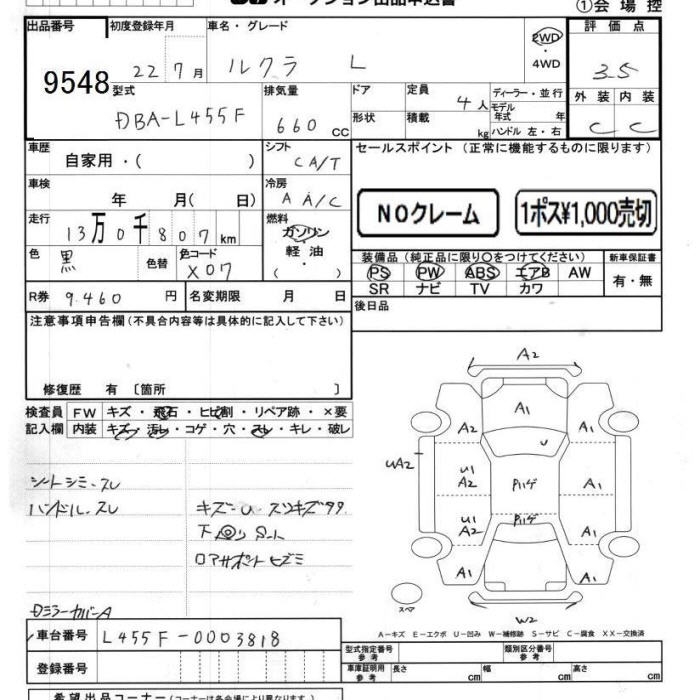 オークション出品申込書
①会場控
出品番号 初度登録年月 車名・グレード 評価点
9548 22 7月 ルクラ L 2WD・4WD 3.5
型式 排気量 ドア 定員 ディーラー・並行 外装 内装
DBA-L455F 660 CC 4人 モデル年式 年
形状 積載 kg ハンドル 左・右 C C
車歴 自家用・( ) シフト CA/T セールスポイント (正常に機能するものに限ります)
車検 年 月( 日) 冷房 A A/C
NOクレーム 1ポス¥1,000売切
走行 13万0千807km 燃料 ガソリン・軽油・( )
色 黒 色替 色コード X07
装備品 (純正品に限り○をつけてください) 新車保証書
PS PW ABS エアB AW 有・無
SR ナビ TV カワ
R券 9.460円 名変期限 月 日
後日品
注意事項申告欄(不具合内容等は具体的に記入して下さい)
修復歴 有 〔箇所 〕
検査員記入欄 FW キズ・飛石・ヒビ割・リペア跡・×要
内装 キズ・汚レ・コゲ・穴・スレ・キレ・破レ
シートシミ・スレ
ハンドル・スレ
キズ-U
ロアサポートヒズミ
ドミラーカバーA
A2
A1
A2 U A1
UA2 U1 A2 A1
U1 A2 A1
A1 A1
スペア
W2
A-キズ E-エクボ U-凹み W-補修跡 S-サビ C-腐食 XX-交換済
車台番号 L455F-0003818
登録番号
型式指定番号 参考 類別区分番号 参考
車庫証明用 参考 長さ cm 幅 cm 高さ cm
希望出品コーナー(コーナーは各会場により異なります。)